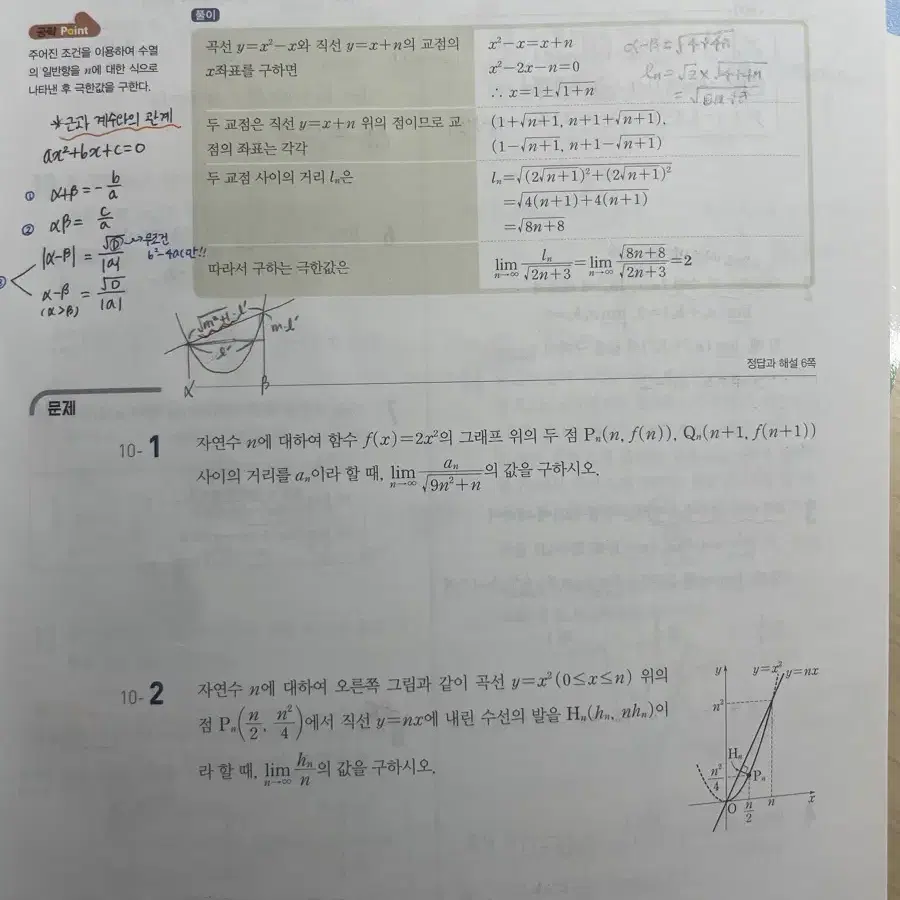 풀이
공략 Point
주어진 조건을 이용하여 수열
의 일반항을 n에 대한 식으로
나타낸 후 극한값을 구한다.
*근과 계수와의 관계
ax²+bx+c=0
① α+β=-b/a
② αβ=c/a
|α-β|=√D/|a| → 무조건 b²-4ac만!!
α-β=√D/|a|
(α>β)
곡선 y=x²-x와 직선 y=x+n의 교점의
x좌표를 구하면
x²-x=x+n
x²-2x-n=0
∴ x=1±√(1+n)
α-β=√(4+4n)
두 교점은 직선 y=x+n 위의 점이므로 교
점의 좌표는 각각
(1+√(n+1), n+1+√(n+1)),
(1-√(n+1), n+1-√(n+1))
두 교점 사이의 거리 lₙ은
lₙ=√((2√(n+1))²+(2√(n+1))²)
=√(4(n+1)+4(n+1))
=√(8n+8)
따라서 구하는 극한값은
lim n→∞ lₙ/√(2n+3)=lim n→∞ √(8n+8)/√(2n+3)=2
√(m²+1)·l'
m·l'
l'
α β
정답과 해설 6쪽
문제
10-1 자연수 n에 대하여 함수 f(x)=2x²의 그래프 위의 두 점 Pₙ(n, f(n)), Qₙ(n+1, f(n+1))
사이의 거리를 aₙ이라 할 때, lim n→∞ aₙ/√(9n²+n)의 값을 구하시오.
10-2 자연수 n에 대하여 오른쪽 그림과 같이 곡선 y=x²(0≤x≤n) 위의
점 Pₙ(n/2, n²/4)에서 직선 y=nx에 내린 수선의 발을 Hₙ(hₙ, nhₙ)이
라 할 때, lim n→∞ hₙ/n의 값을 구하시오.
y y=x² y=nx
n²
Hₙ
n²/4 Pₙ
O n/2 n x